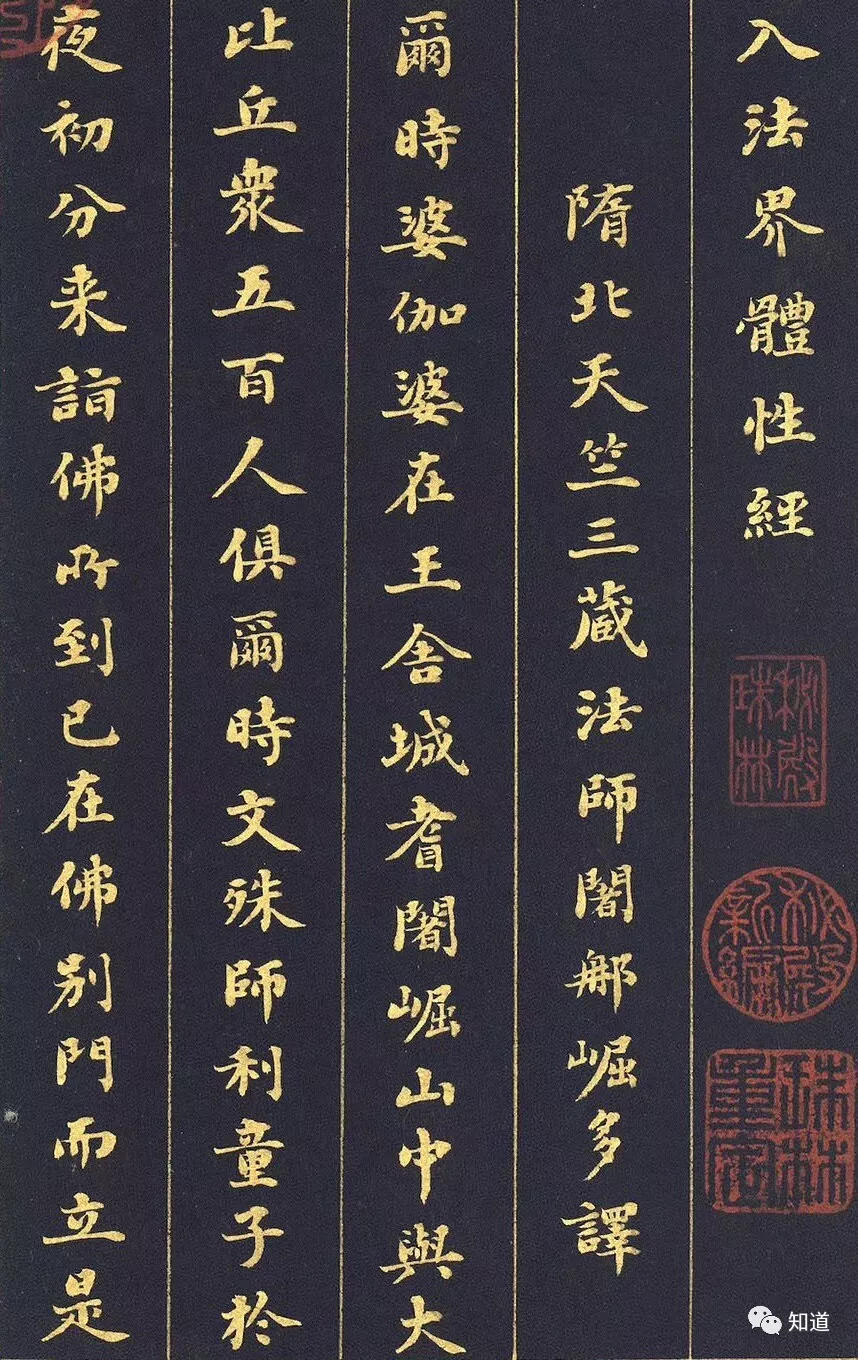 入法界體性經
隋北天竺三蔵法師闍那崛多譯
爾時婆伽婆在王舎城耆闍崛山中與大
比丘衆五百人俱爾時文殊師利童子於
夜初分来詣佛所到已在佛别門而立是
秘殿
珠林
秘殿
新編
珠林
重定
知道